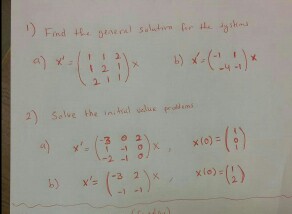 1) Find the general solution for the systems
a) x' = (1 1 2 / 1 2 1 / 2 1 1) x    b) x' = (-1 1 / -4 -1) x
2) Solve the initial value problems
a) x' = (-3 0 2 / 1 -1 0 / -2 -1 0) x , x(0) = (1 / 0 / 1)
b) x' = (-3 2 / -1 -1) x , x(0) = (1 / 2)